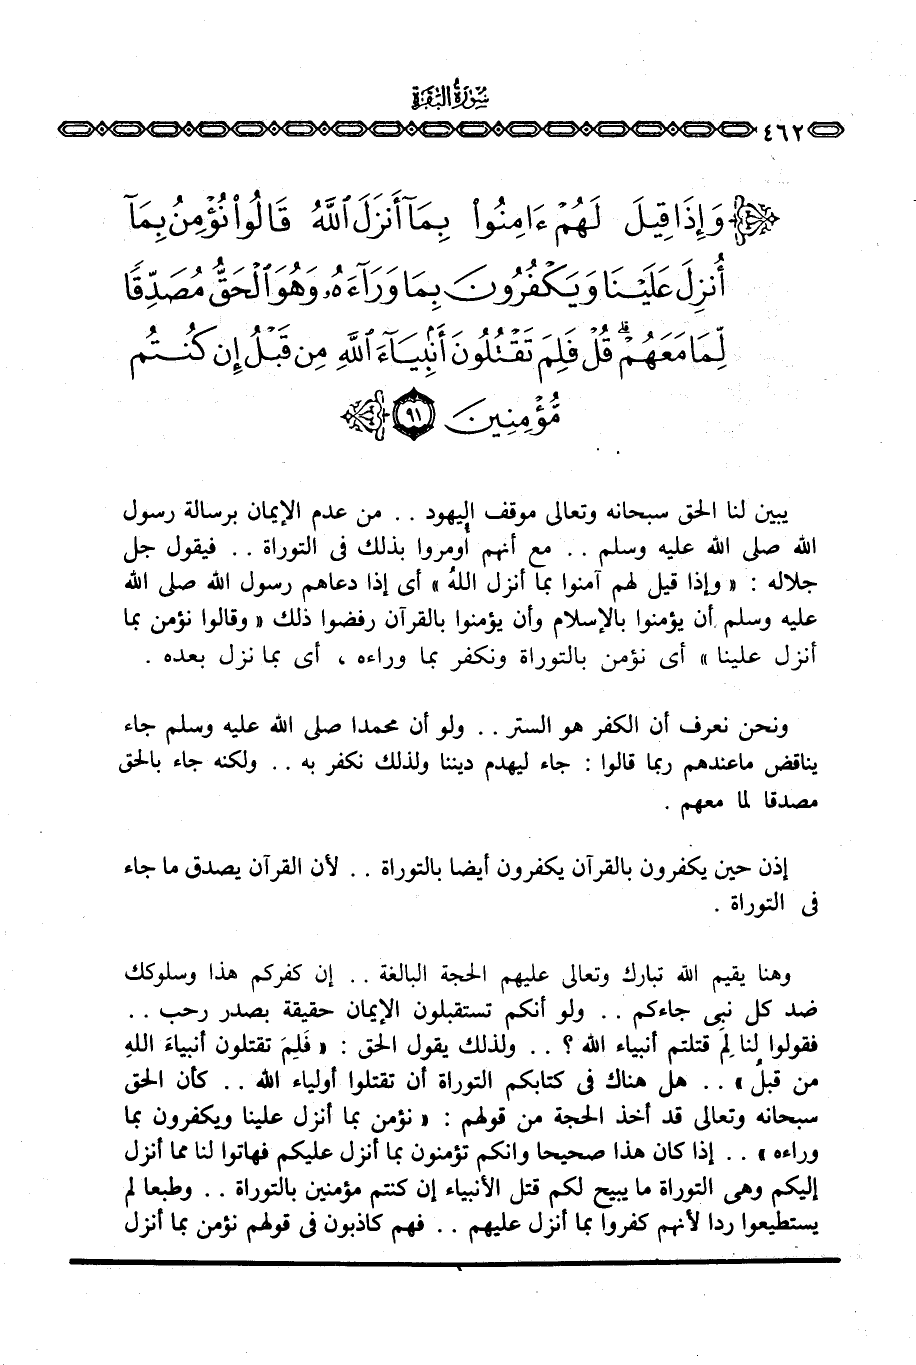 سُورَةُ البَقَرَة
٤٦٢
وَإِذَا قِيلَ لَهُمْ ءَامِنُوا۟ بِمَآ أَنزَلَ ٱللَّهُ قَالُوا۟ نُؤْمِنُ بِمَآ
أُنزِلَ عَلَيْنَا وَيَكْفُرُونَ بِمَا وَرَآءَهُۥ وَهُوَ ٱلْحَقُّ مُصَدِّقًا
لِّمَا مَعَهُمْ ۗ قُلْ فَلِمَ تَقْتُلُونَ أَنۢبِيَآءَ ٱللَّهِ مِن قَبْلُ إِن كُنتُم
مُّؤْمِنِينَ ٩١
يبين لنا الحق سبحانه وتعالى موقف اليهود . . من عدم الإيمان برسالة رسول
الله صلى الله عليه وسلم . . مع أنهم أومروا بذلك فى التوراة . . فيقول جل
جلاله : « وإذا قيل لهم آمنوا بما أنزل اللهُ » أى إذا دعاهم رسول الله صلى الله
عليه وسلم أن يؤمنوا بالإسلام وأن يؤمنوا بالقرآن رفضوا ذلك « وقالوا نؤمن بما
أنزل علينا » أى نؤمن بالتوراة ونكفر بما وراءه ، أى بما نزل بعده .
ونحن نعرف أن الكفر هو الستر . . ولو أن محمدا صلى الله عليه وسلم جاء
يناقض ماعندهم ربما قالوا : جاء ليهدم ديننا ولذلك نكفر به . . ولكنه جاء بالحق
مصدقا لما معهم .
إذن حين يكفرون بالقرآن يكفرون أيضا بالتوراة . . لأن القرآن يصدق ما جاء
فى التوراة .
وهنا يقيم الله تبارك وتعالى عليهم الحجة البالغة . . إن كفركم هذا وسلوكك
ضد كل نبى جاءكم . . ولو أنكم تستقبلون الإيمان حقيقة بصدر رحب . .
فقولوا لنا لِمَ قتلتم أنبياء الله ؟ . . ولذلك يقول الحق : « فَلِمَ تقتلون أنبياءَ اللهِ
من قبلُ » . . هل هناك فى كتابكم التوراة أن تقتلوا أولياء الله . . كأن الحق
سبحانه وتعالى قد أخذ الحجة من قولهم : « نؤمن بما أنزل علينا ويكفرون بما
وراءه » . . إذا كان هذا صحيحا وانكم تؤمنون بما أنزل عليكم فهاتوا لنا مما أنزل
إليكم وهى التوراة ما يبيح لكم قتل الأنبياء إن كنتم مؤمنين بالتوراة . . وطبعا لم
يستطيعوا ردا لأنهم كفروا بما أنزل عليهم . . فهم كاذبون فى قولهم نؤمن بما أنزل